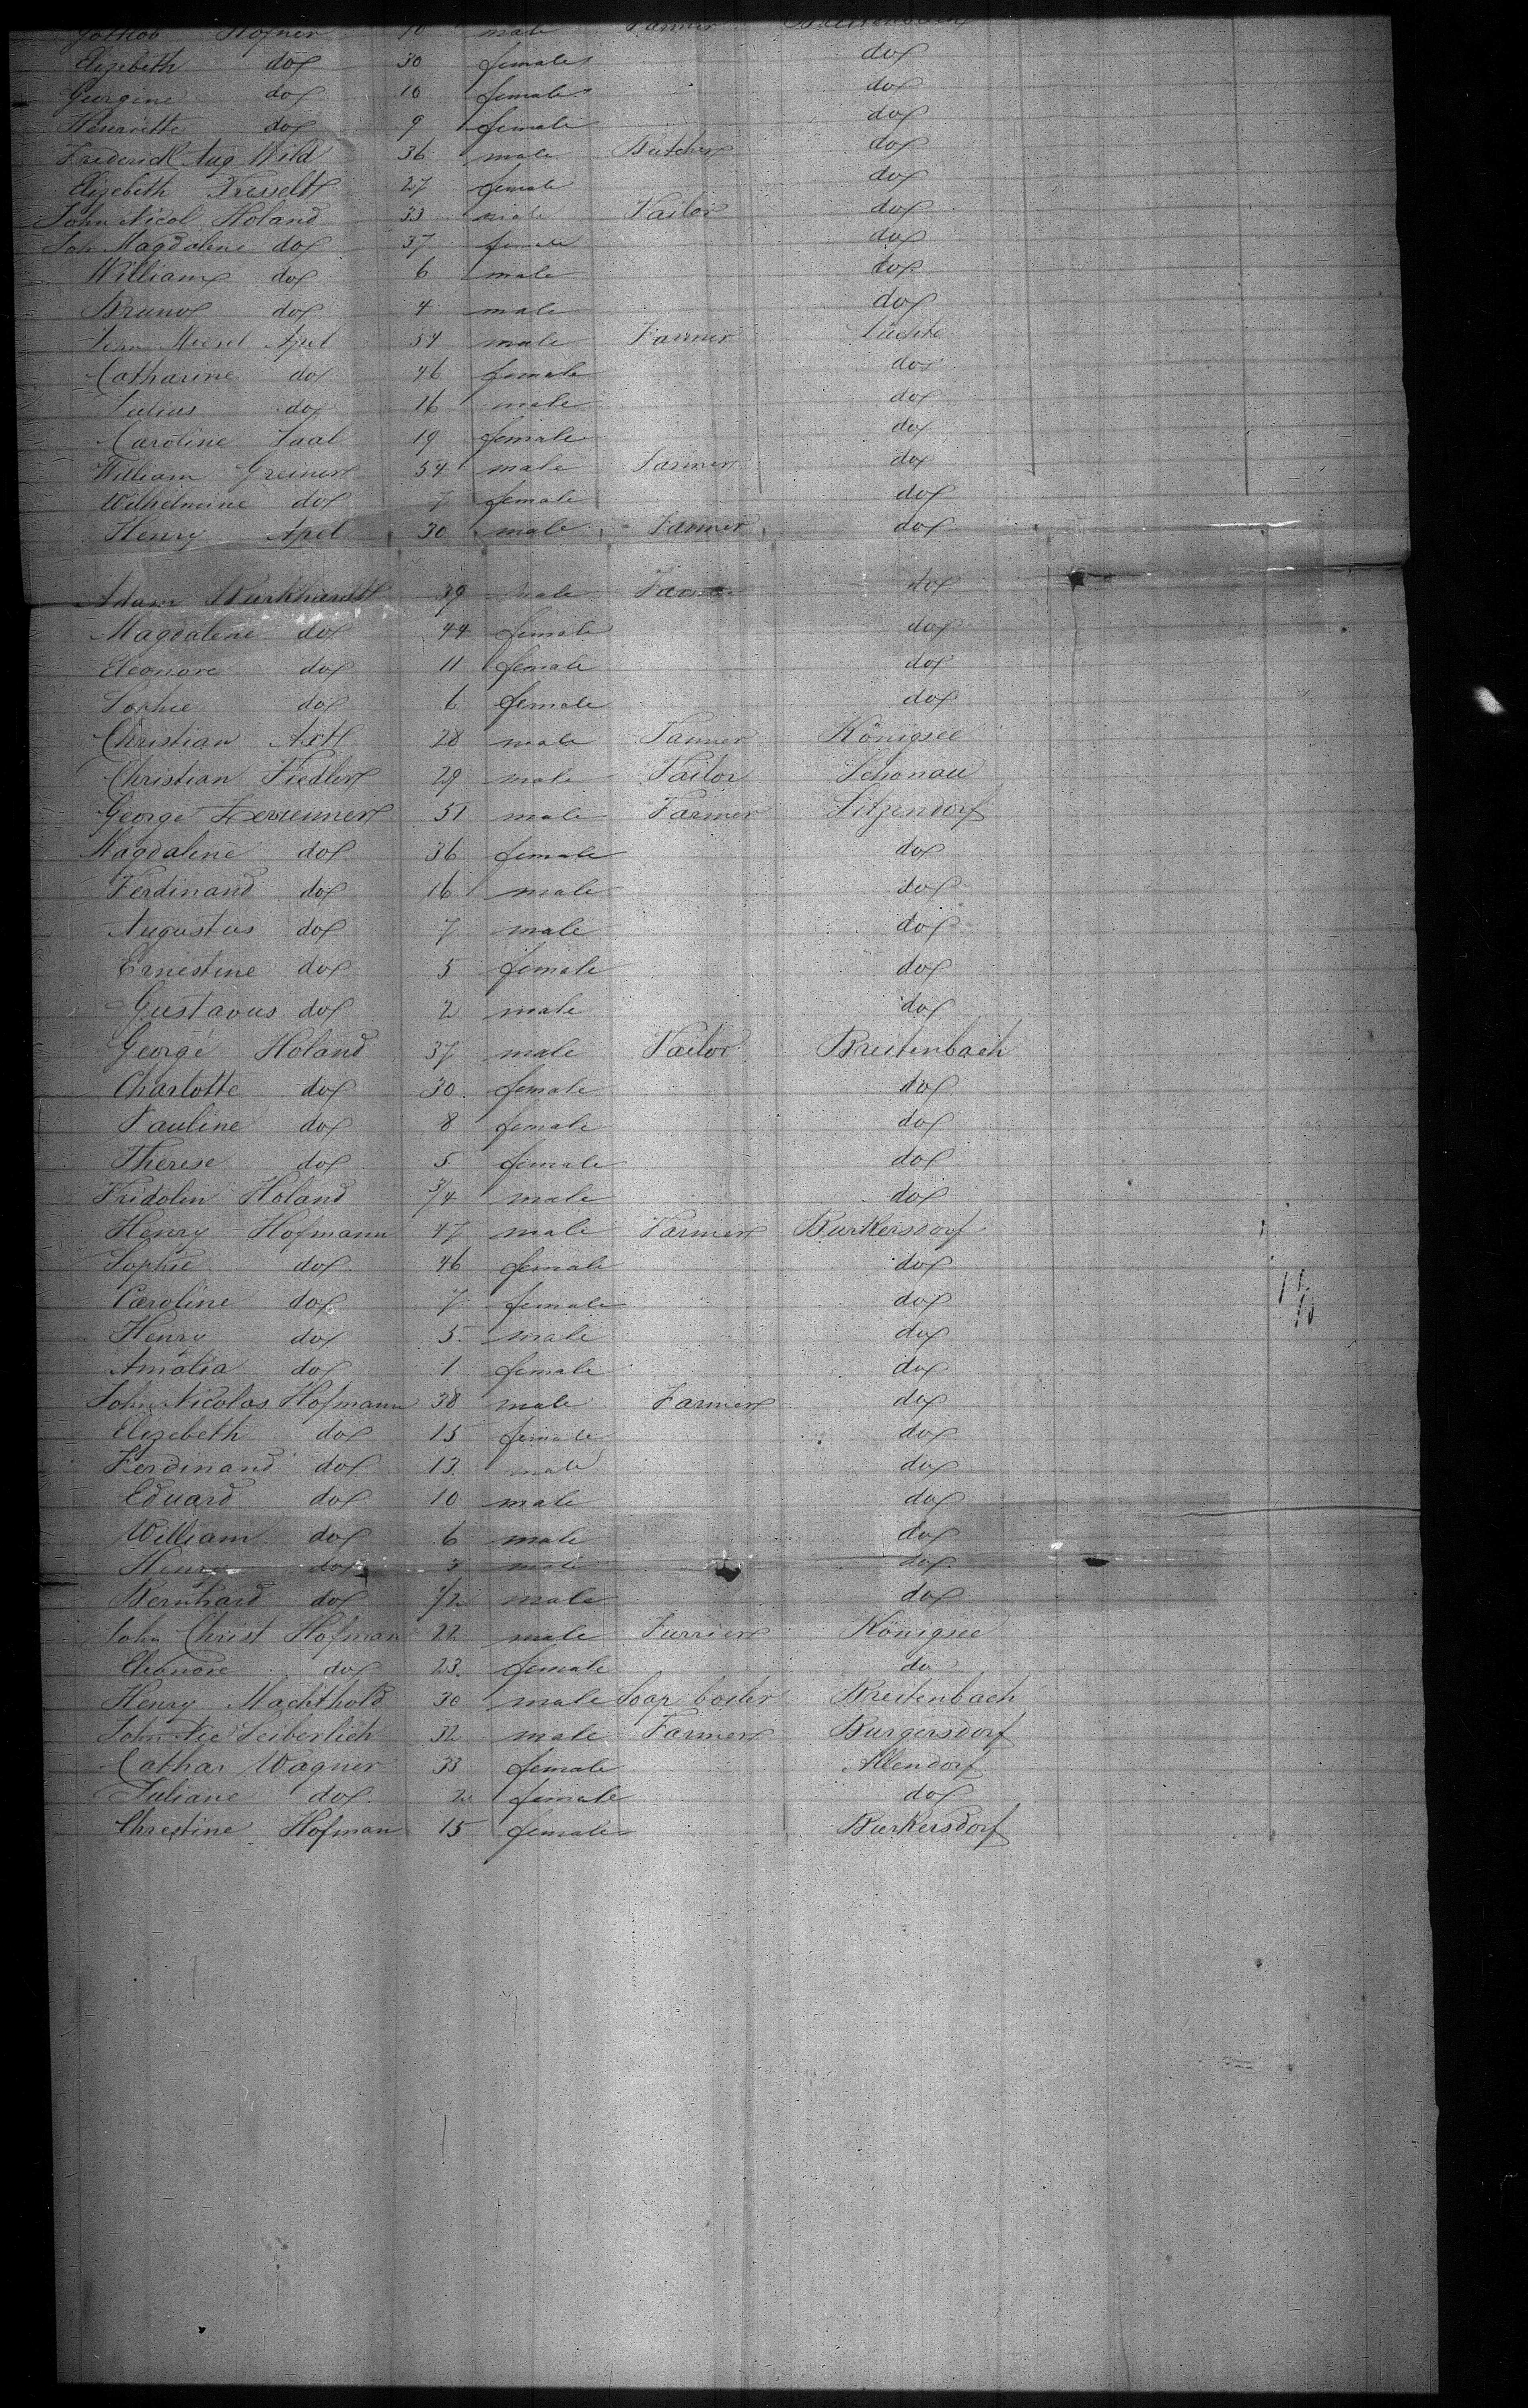 Hofner male Farmer
Elizebeth do 30 female do
Georgine do 10 female do
Henriette do 9 female do
Frederick Aug Wild 36 male Butcher do
Elizebeth 27 female do
John Nicol Holand 33 male Tailor do
Joh Magdalene do 37 female do
William do 6 male do
Bruno do 4 male do
Apel 54 male Farmer
Catharine do 46 female do
Julius do 16 male do
Caroline Saal 19 female do
William Greiner 54 male Farmer do
Wilhelmine do 7 female do
Henry Apel 30 male Farmer do
Adam Burkhardt 39 male Farmer do
Magdalene do 44 female do
Eleonore do 11 female do
Sophie do 6 female do
Christian Axt 28 male Tanner Königsee
Christian Fiedler 29 male Tailor Schonau
George 51 male Farmer Sitzendorf
Magdalene do 36 female do
Ferdinand do 16 male do
Augustus do 7 male do
Ernestine do 5 female do
Gustavus do 2 male do
George Holand 37 male Tailor Breitenbach
Charlotte do 30 female do
Pauline do 8 female do
Therese do 5 female do
Fridolin Holand 3/4 male do
Henry Hofmann 47 male Farmer Burkersdorf
Sophie do 46 female do
Caroline do 7 female do
Henry do 5 male do
Amalia do 1 female do
John Nicolas Hofmann 38 male Farmer do
Elizebeth do 15 female do
Ferdinand do 13 male do
Eduard do 10 male do
William do 6 male do
Henry do 3 male do
Bernhard do 1/2 male do
John Christ Hofman 22 male Furrier Königsee
Eleonore do 23 female do
Henry Machthold 30 male Soap boiler Breitenbach
John Nic Seiberlich 32 male Farmer Burgersdorf
Cathar Wagner 33 female Allendorf
Juliane do 2 female do
Chrestine Hofman 15 female Burkersdorf